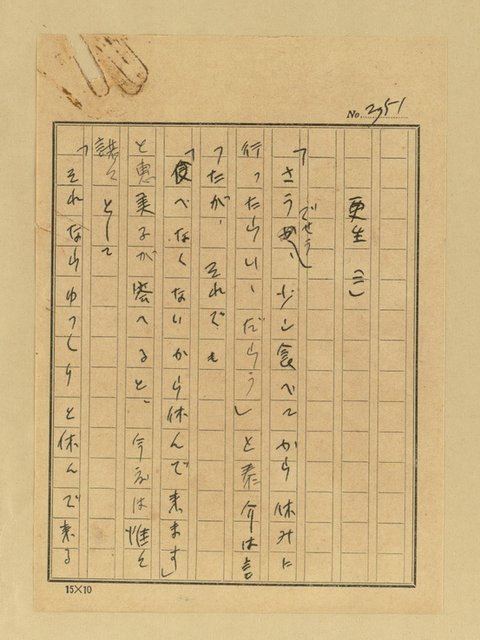 No. 2951
更生（三）
でせう
「さうね、少し食べてから休みに
行ったらいゝだらう」と泰介は言
つたが、それでも
「食べなくないから休んで来ます」
と恵美子が答へると、今度は惟
諾々として
「それならゆつくりと休んで来る
15×10